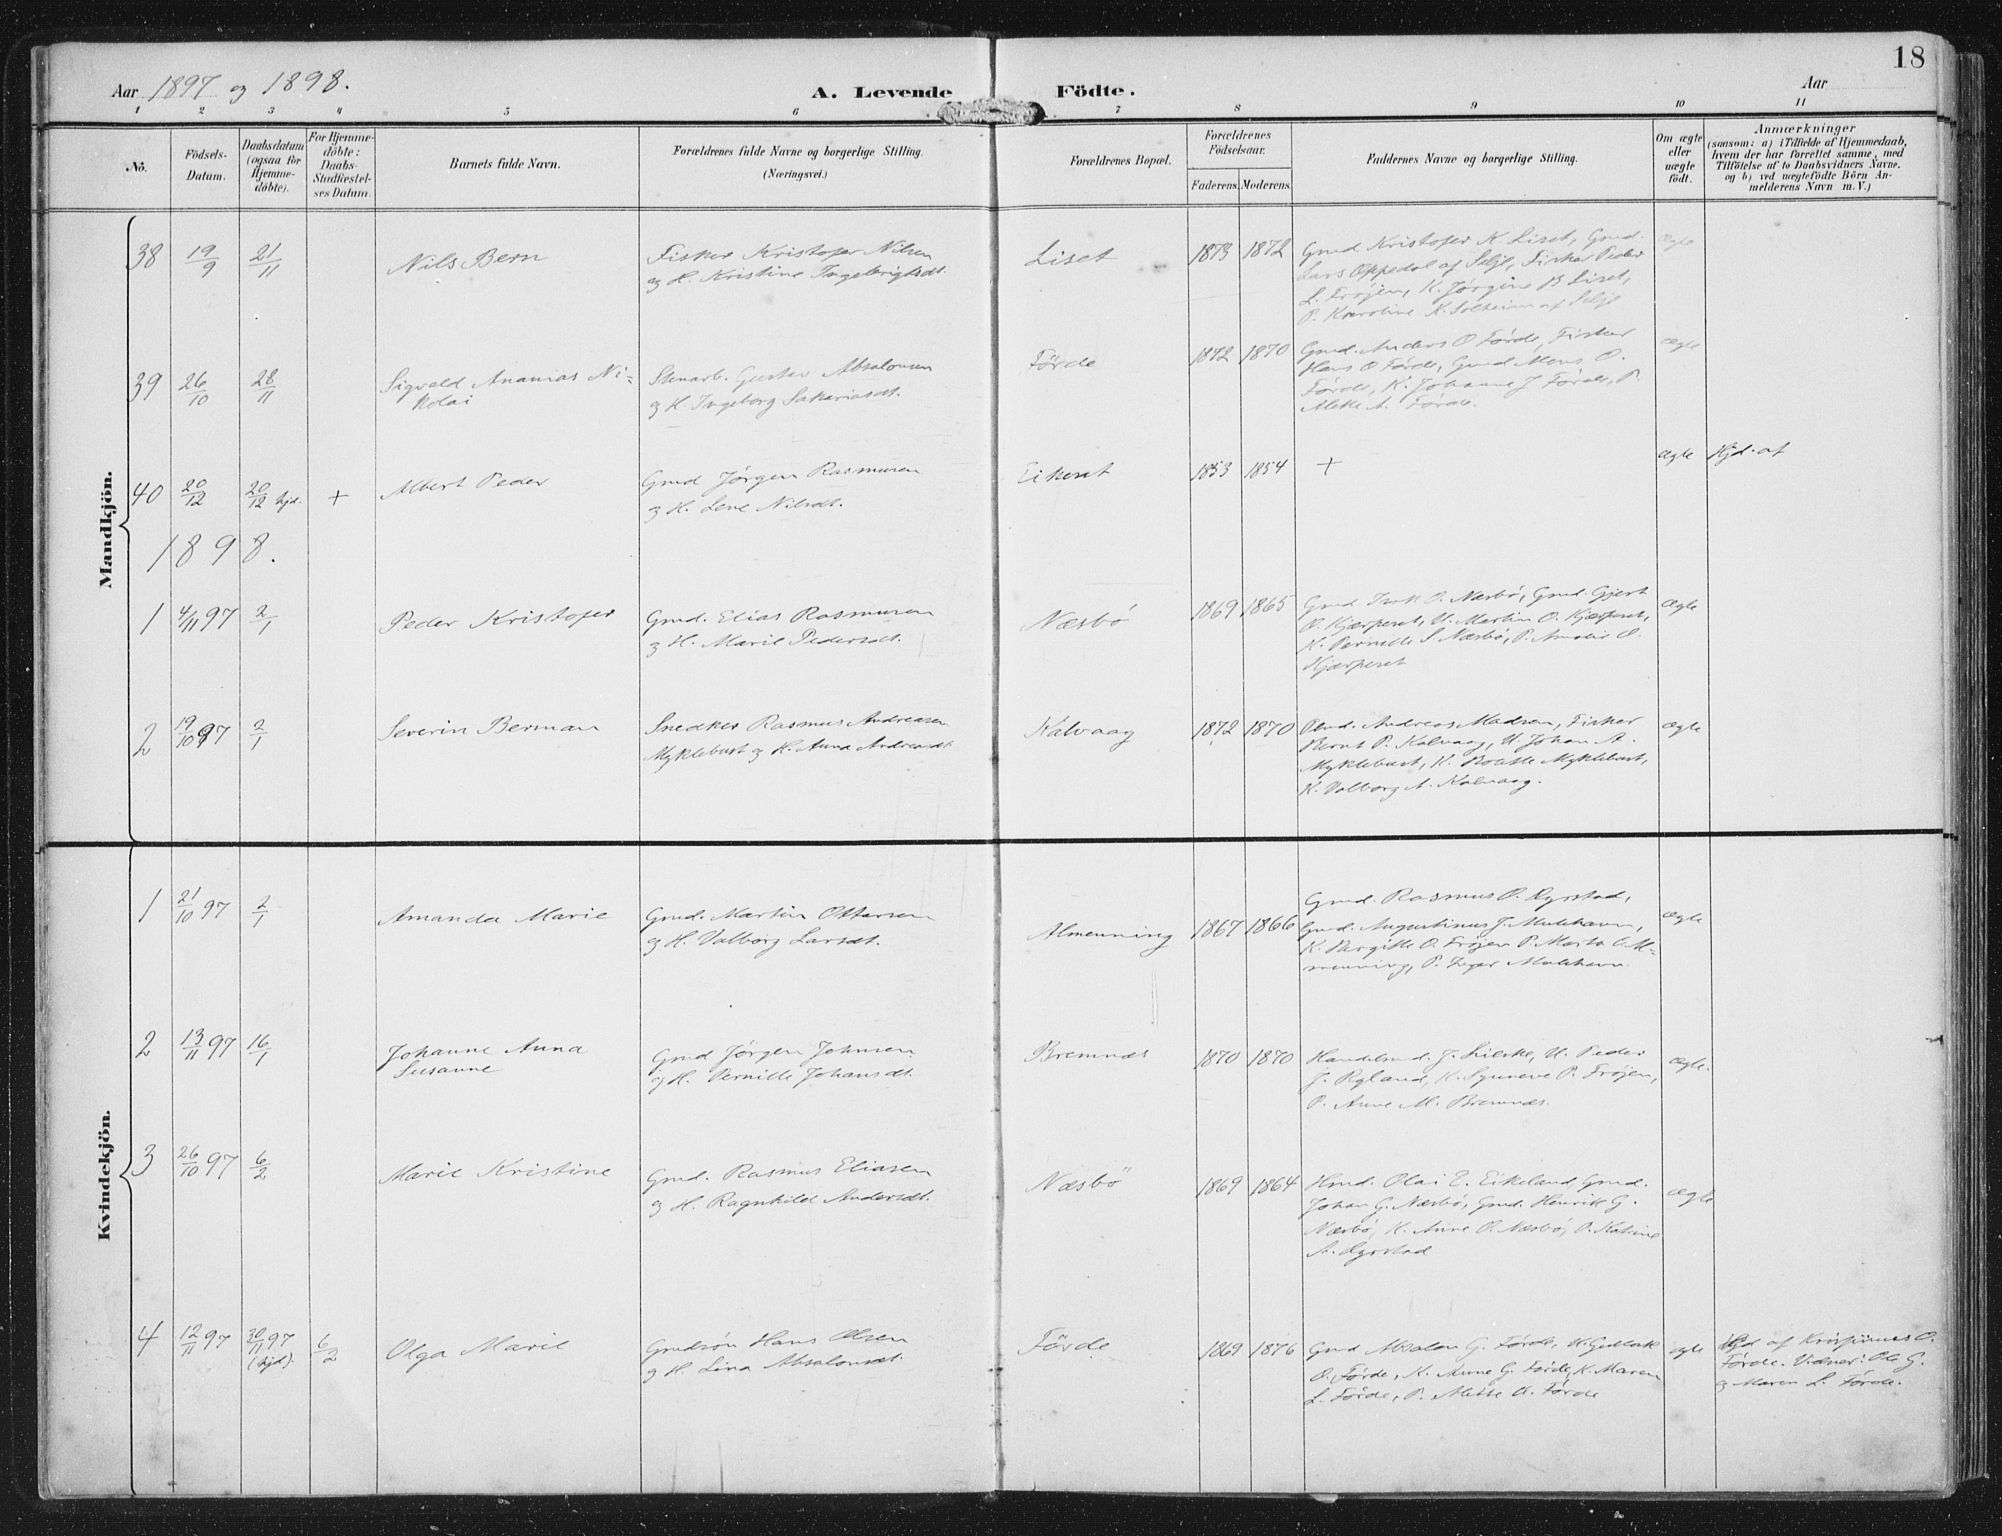 18
Aar 1897 og 1898.
A. Levende Födte.
Aar
1 2 3 4 5 6 7 8 9 10 11
No.
Födsels-Datum.
Daabsdatum (ogsaa for Hjemme-döbte).
For Hjemme-döbte: Daabs-Stadfæstel-ses Datum.
Barnets fulde Navn.
Forældrenes fulde Navne og borgerlige Stilling.
(Næringsvei.)
Forældrenes Bopæl.
Forældrenes Födselsaar.
Faderens. Moderens.
Faddernes Navne og borgerlige Stilling.
Om ægte eller uægte födt.
Anmærkninger
(saasom: a) i Tilfælde af Hjemmedaab, hvem der har forrettet samme, med Tilföielse af to Daabsvidners Navne, og b) ved uægtefödte Börn An-melderens Navn m. V.)
Mandkjön.
38 19/9 21/11 Nils Bern
Fisker Kristofer Nilsen
og H. Kristine Ingebrigtsdt.
Liset 1873 1872
Gmd. Kristofer K. Liset, Gmd.
Lars Oppedal af Selje, Fisker Peder
L. Fröjen, K. Jörgine B Liset,
P. Karoline K. Solheim af Selje
ægte
39 26/10 28/11 Sigvald Ananias Ni-
kolai
Stenarb. Gustav Absalonsen
og H. Ingeborg Sakariasdt.
Förde 1872 1870
Gmd. Anders O Förde, Fisker
Hans O Förde, Gmd Mons O.
Förde, K. Johanne J Förde, P.
Alette A. Förde.
ægte
40 20/12 20/12 hjd. +
Albert Peder
Gmd Jörgen Rasmusen
og H. Lene Nilsdt.
Eikeset 1853 1854 + ægte Hjd. af
1898.
1 4/11 97 2/1 Peder Kristofer
Gmd. Elias Rasmusen
og H. Marie Pedersdt.
Næsbö 1869 1865
Gmd Isak P. Næsbö, Gmd. Gjert
O. Kjærpeset, U. Martin O. Kjærpeset,
K. Pernille S Næsbö, P. Amalie O.
Kjærpeset
ægte
2 19/10 97 2/1 Severin Berman
Snedker Rasmus Andreasen
Myklebust og H. Anna Andreasdt.
Kalvaag 1872 1870
Andreas Madsen, Fisker
Bernt P. Kalvaag, U Johan A.
Myklebust, K. Bolette Myklebust,
K. Valborg A. Kalvaag.
ægte
Kvindekjön.
1 21/10 97 2/1 Amanda Marie
Gmd. Martin Ottersen
og H. Valborg Larsdt.
Almenning 1867 1866
Gmd. Rasmus O. Rysstad,
Gmd. Augustinus J. Mulehavn,
K. Birgitte O. Fröjen P. Marta O. Al-
menning, P. Inger Mulehavn.
ægte
2 13/11 97 16/1 Johanne Anna
Susanne
Gmd Jörgen Johnsen
og H. Pernille Johansdt.
Bremnæs 1870 1870
Handelsmd. J. Lilcke, U. Peder
J. Ryland, K. Synneve P. Fröjen,
P. Anne M. Bremnæs.
ægte.
3 26/10 97 6/2 Marie Kristine
Gmd. Rasmus Eliasen
og H. Ragnhild Andersdt.
Næsbö 1869 1864
Hmd. Olai E. Eikeland Gmd.
Johan G. Næsbö, Gmd. Henrik G.
Næsbö, K. Anne O. Næsbö, P. Katrine
A. Rysstad
ægte
4 12/11 97 30/11 97 (hjd). 6/2 Olga Marie
Gmdsön Hans Olsen
og H. Lina Absalonsdt.
Förde 1869 1876
Gmd Absalon G. Förde, U. Gudleik
O. Förde, K. Anne G. Förde, K. Maren
L. Förde, P. Alette O. Förde
ægte
Hjd af Krispinus O.
Förde. Vidner: Ole G.
og Maren L. Förde.